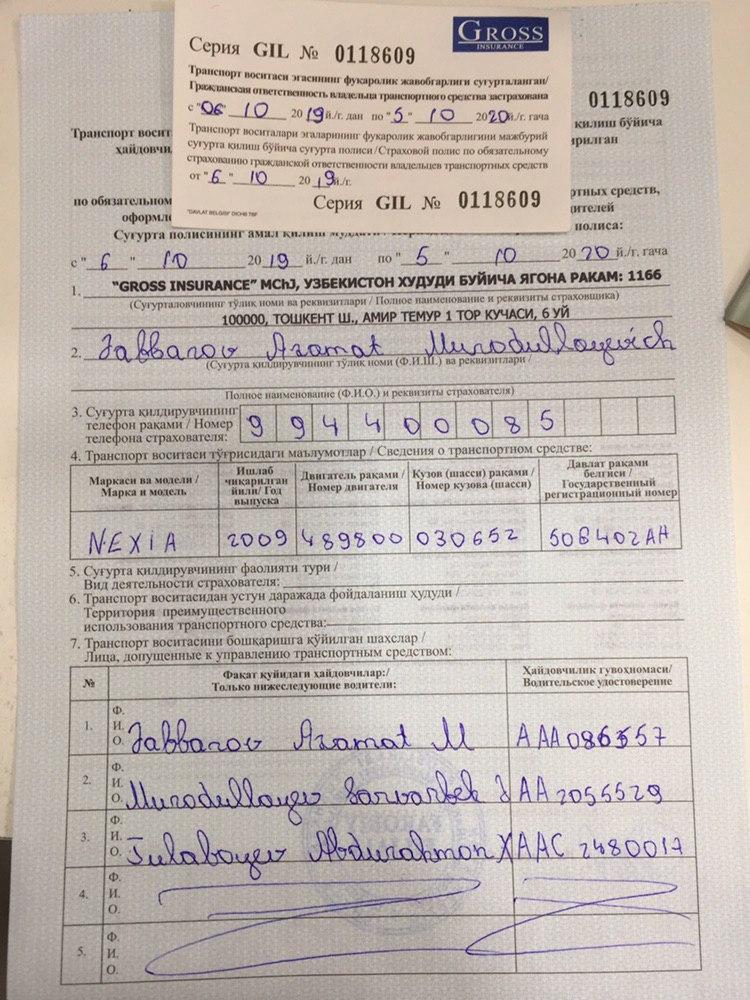 Серия GIL № 0118609
GROSS
INSURANCE
Транспорт воситаси эгасининг фуқаролик жавобгарлиги суғурталанган/
Гражданская ответственность владельца транспортного средства застрахована
с "06" 10 2019й./г. дан по "5" 10 2020й./г. гача
Транспорт воситалари эгаларининг фуқаролик жавобгарлигини мажбурий
суғурта қилиш бўйича суғурта полиси/Страховой полис по обязательному
страхованию гражданской ответственности владельцев транспортных средств
от "6" 10 2019й./г.
Серия GIL № 0118609
"DAVLAT BELGISI" DICHB TBF
0118609
Транспорт восит
қилиш бўйича
хайдовчи
по обязательном
ртных средств,
оформле
полиса:
Суғурта полисининг амал қилиш муддати
с "6" 10 2019 й./г. дан по "5" 10 2020 й./г. гача
1. "GROSS INSURANCE" MChJ, УЗБЕКИСТОН ХУДУДИ БУЙИЧА ЯГОНА РАКАМ: 1166
(Суғурталовчининг тўлиқ номи ва реквизитлари / Полное наименование и реквизиты страховщика)
100000, ТОШКЕНТ Ш., АМИР ТЕМУР 1 ТОР КУЧАСИ, 6 УЙ
2. Jabbarov Azamat Murodullayevich
(Суғурта қилдирувчининг тўлиқ номи (Ф.И.Ш.) ва реквизитлари /
Полное наименование (Ф.И.О.) и реквизиты страхователя)
3. Суғурта қилдирувчининг
телефон рақами / Номер
телефона страхователя:
994400085
4. Транспорт воситаси тўғрисидаги маълумотлар / Сведения о транспортном средстве:
Маркаси ва модели /
Марка и модель
Ишлаб
чиқарилган
йили/ Год
выпуска
Двигатель рақами /
Номер двигателя
Кузов (шасси) рақами /
Номер кузова (шасси)
Давлат рақами
белгиси /
Государственный
регистрационный номер
NEXIA 2009 489800 030652 50B402AH
5. Суғурта қилдирувчининг фаолияти тури /
Вид деятельности страхователя:
6. Транспорт воситасидан устун даражада фойдаланиш ҳудуди /
Территория преимущественного
использования транспортного средства:
7. Транспорт воситасини бошқаришга қўйилган шахслар /
Лица, допущенные к управлению транспортным средством:
№
Фақат қуйидаги хайдовчилар:/
Только нижеследующие водители:
Хайдовчилик гувоҳномаси/
Водительское удостоверение
1. Ф.
И.
О. Jabbarov Azamat M AAA086557
2. Ф.
И.
О. Murodullayev Sarvarbek J AA 2055529
3. Ф.
И.
О. Tulaboyev Abdurahmon X AAC 2480017
4. Ф.
И.
О.
5. Ф.
И.
О.